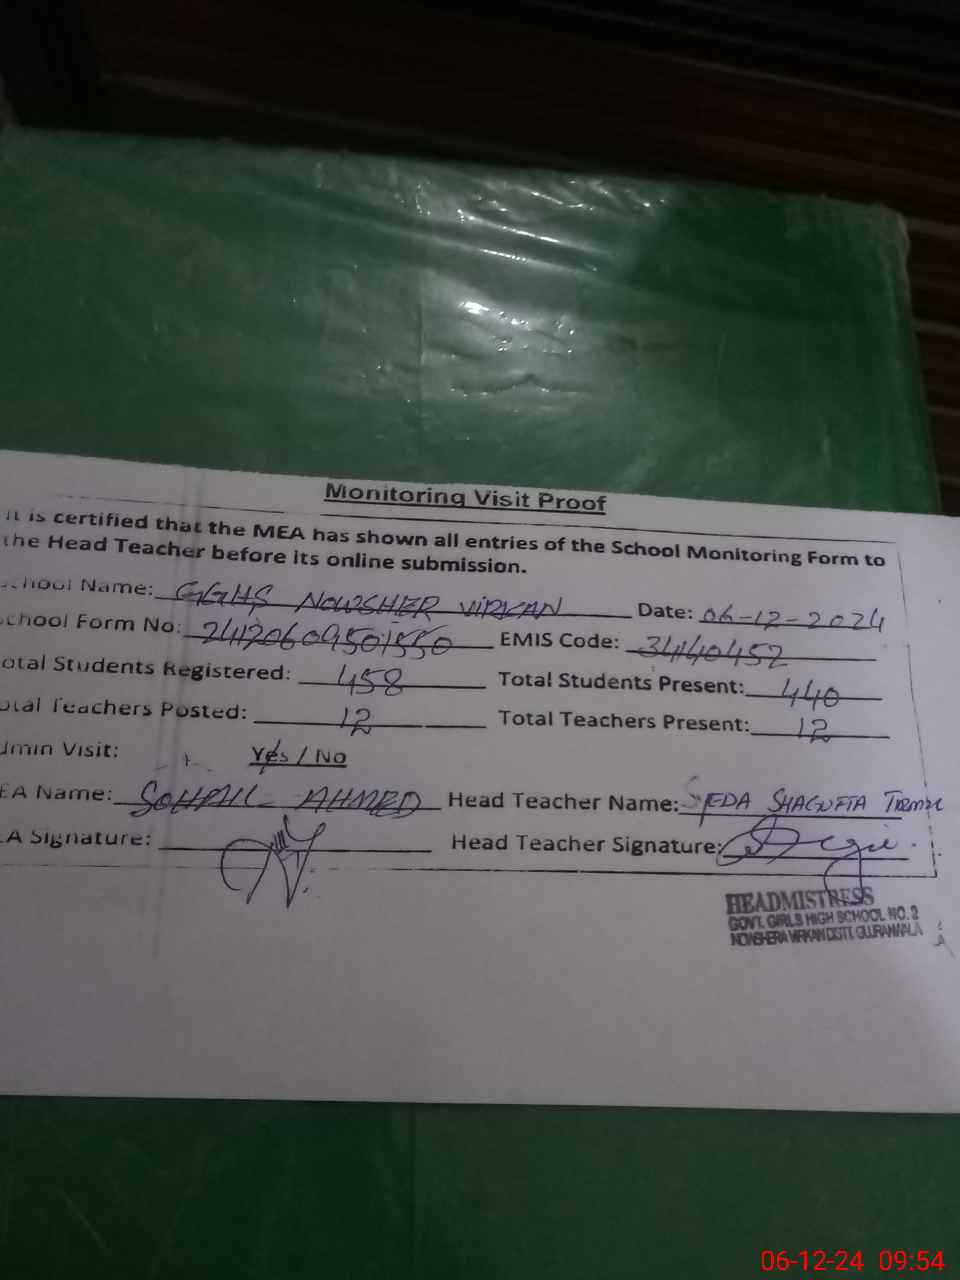 Monitoring Visit Proof
It is certified that the MEA has shown all entries of the School Monitoring Form to
the Head Teacher before its online submission.
chool Name: GGHS NOWSHER VIRKAN Date: 06-12-2024
chool Form No: 24120609501550 EMIS Code: 34140452
otal Students Registered: 458 Total Students Present: 440
otal Teachers Posted: 12 Total Teachers Present: 12
dmin Visit: Yes / No
EA Name: SOHAIL AHMED Head Teacher Name: SYEDA SHAGUFTA
EA Signature: Head Teacher Signature:
HEADMISTRESS
GOVT. GIRLS HIGH SCHOOL NO. 2
NOWSHERA VIRKAN DISTT. GUJRANWALA
06-12-24 09:54